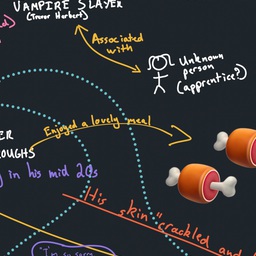 VAMPIRE SLAYER
(Trevor Herbert)
Associated
with
Unknown
person
(apprentice?)
Enjoyed a lovely meal
ER
ROUGHS
in his mid 20s
His skin "crackled and
"I'm so sorry